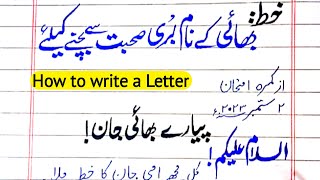 خط:
بھائی کے نام بُری صحبت سے بچنے کیلئے
How to write a Letter
از کمرہ امتحان
۲ ستمبر ۲۰۲۳ء
پیارے بھائی جان!
السلام علیکم!
کل مجھے امی جان کا خط ملا